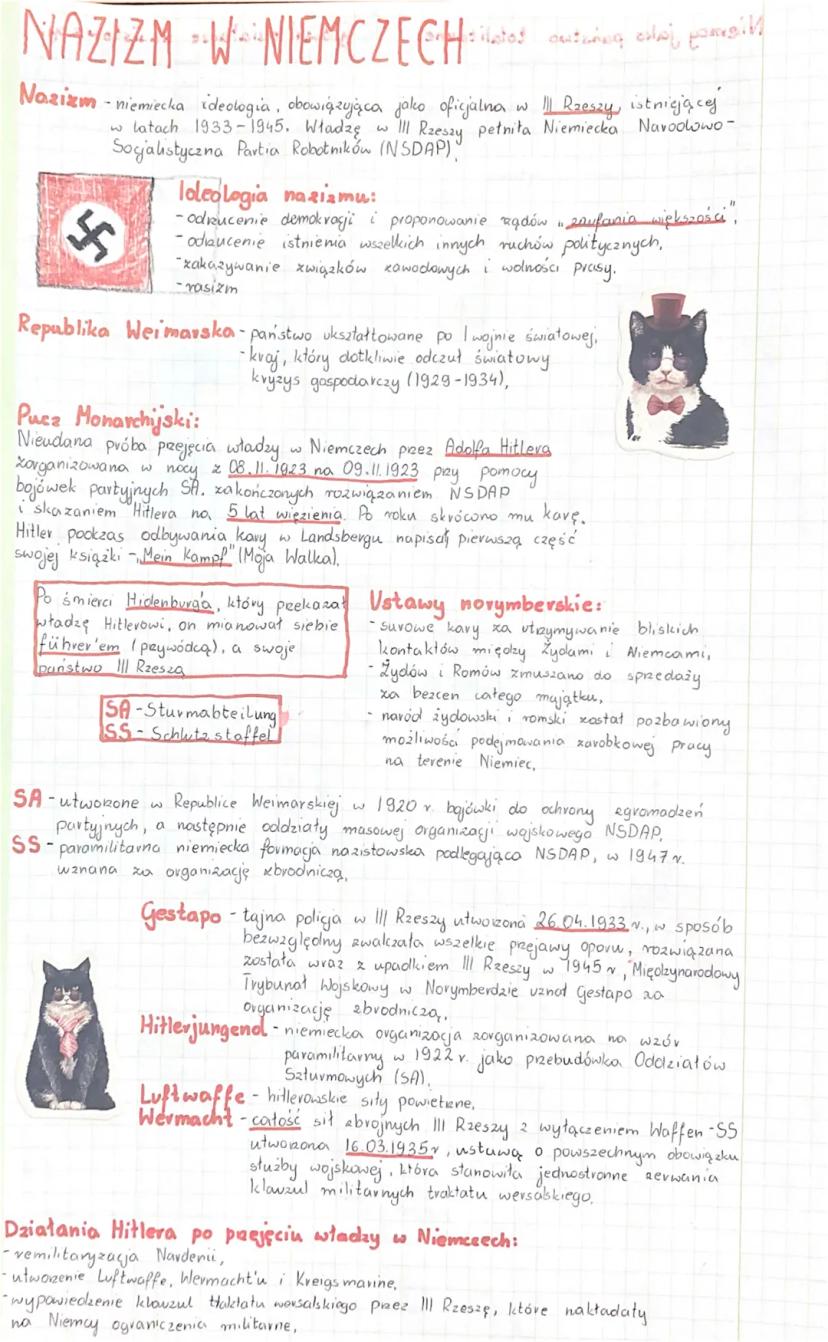 NAZIZM W NIEMCZECH
Nazizm - niemiecka ideologia, obowiązująca jako oficjalna w III Rzeszy, istniejącej
w latach 1933-1945. Władzę w III Rzeszy pełniła Niemiecka Narodowo-
Socjalistyczna Partia Robotników (NSDAP).
Ideologia nazizmu:
- odrzucenie demokracji i proponowanie rządów „zaufania większości",
- odrzucenie istnienia wszelkich innych ruchów politycznych,
- zakazywanie związków zawodowych i wolności prasy.
- rasizm
Republika Weimarska - państwo ukształtowane po I wojnie światowej,
- kraj, który dotkliwie odczuł światowy
kryzys gospodarczy (1929-1934),
Pucz Monarchijski:
Nieudana próba przejęcia władzy w Niemczech przez Adolfa Hitlera
zorganizowana w nocy z 08.11.1923 na 09.11.1923 przy pomocy
bojówek partyjnych SA. zakończonych rozwiązaniem NSDAP
i skazaniem Hitlera na 5 lat więzienia. Po roku skrócono mu karę.
Hitler podczas odbywania kary w Landsbergu napisał pierwszą część
swojej książki - „Mein Kampf" (Moja Walka).
Po śmierci Hidenburg'a, który przekazał
władzę Hitlerowi, on mianował siebie
führer'em (przywódcą), a swoje
państwo III Rzeszą
SA - Sturmabteilung
SS - Schlutzstaffel
Ustawy norymberskie:
- surowe kary za utrzymywanie bliskich
kontaktów między Żydami i Niemcami,
- Żydów i Romów zmuszano do sprzedaży
za bezcen całego majątku,
- naród żydowski i romski został pozbawiony
możliwości podejmowania zarobkowej pracy
na terenie Niemiec.
SA - utworzone w Republice Weimarskiej w 1920 r. bojówki do ochrony zgromadzeń
partyjnych, a następnie oddziały masowej organizacji wojskowego NSDAP.
SS - paramilitarna niemiecka formacja nazistowska podlegająca NSDAP, w 1947 r.
uznana za organizację zbrodniczą.
Gestapo - tajna policja w III Rzeszy utworzona 26.04.1933 r., w sposób
bezwzględny zwalczała wszelkie przejawy oporu, rozwiązana
została wraz z upadkiem III Rzeszy w 1945 r, Międzynarodowy
Trybunał Wojskowy w Norymberdzie uznał Gestapo za
organizację zbrodniczą.
Hitlerjungend - niemiecka organizacja zorganizowana na wzór
paramilitarny w 1922 r. jako przebudówka Oddziałów
Szturmowych (SA).
Luftwaffe - hitlerowskie siły powietrzne,
Wermacht - całość sił zbrojnych III Rzeszy z wyłączeniem Waffen-SS
utworzona 16.03.1935r, ustawą o powszechnym obowiązku
służby wojskowej, która stanowiła jednostronne zerwania
klauzul militarnych traktatu wersalskiego.
Działania Hitlera po przejęciu władzy w Niemczech:
- remilitaryzacja Nardenii,
- utworzenie Luftwaffe, Wermacht'u i Kreigsmarine,
- wypowiedzenie klauzul traktatu wersalskiego przez III Rzeszę, które nakładały
na Niemcy ograniczenia militarne,